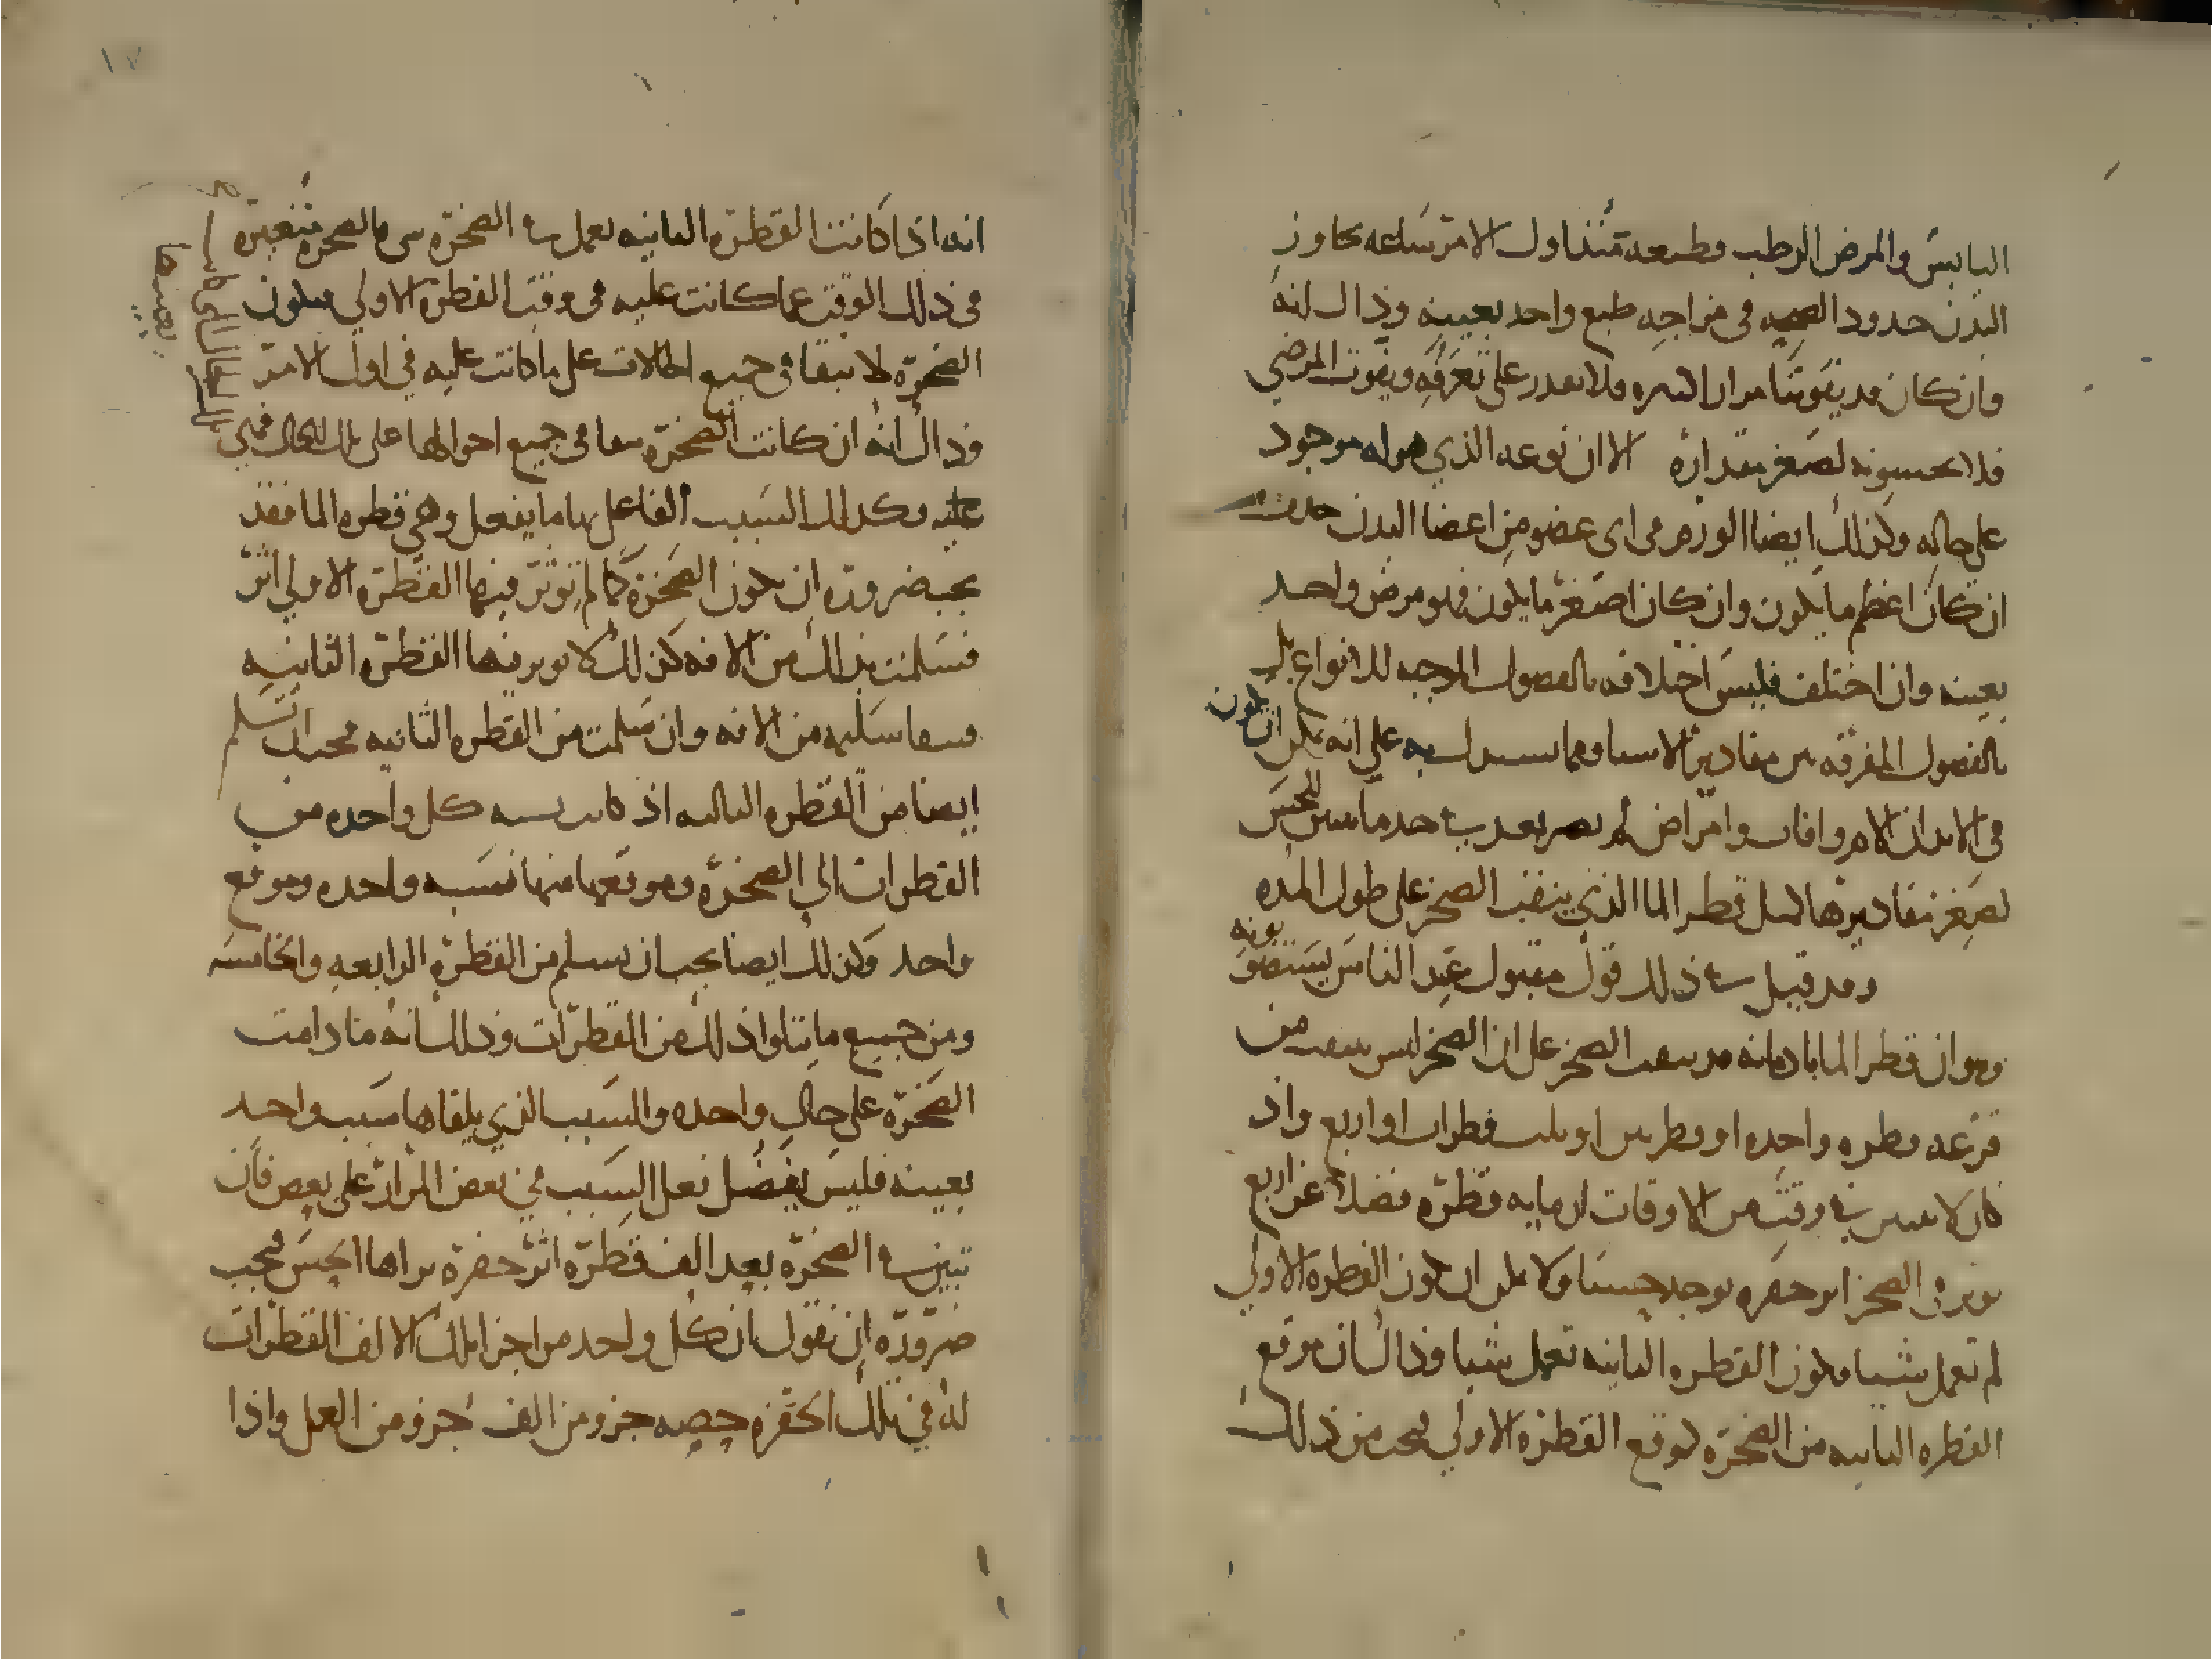 اليابس والمرض الرطب وطبعه متداول الامر ساعه يجاوز
البدن حدود الصحه في مزاجه طبع واحد بعينه وذلك انه
وان كان قد يفوتنا مرارا كثيره فلا نقدر على تعرفه ويفوت المرضي
فلا يحسونه لصغر مقداره الا ان نوعه الذي هو له موجود
على حاله وكذلك ايضا الورم في اى عضو من اعضا البدن حدث
ان كان اعظم ما يكون وان كان اصغر ما يكون فهو مرض واحد
بعينه وان اختلف فليس اختلافه بالفصول الموجبه للانواع بل
بالفصول المفرقه بين مقادير الاشيا ومما يستدل به على انه يمكن ان يكون
في الابدان الام وافات وامراض لم تصر بعد في حد ما يتبين للحس
لصغر مقاديرها مثل قطر الما الذي ينقب الصخر على طول المده
وقد قيل في ذلك قول مقبول عند الناس يستصوبونه
وهو ان قطر الما بادمانه قد ينقب الصخر على ان الصخر ليس ينقب من
قرعه قطره واحده او قطرتين او ثلث قطرات او اربع واذ
كان لا يتبين في وقت من الاوقات ان مايه قطره فضلا عن اربع
تؤثر في الصخر اثر حفره يوجد حسا ولا يمكن ان تكون القطره الاولي
لم تعمل شيا وتكون القطره الثانيه تعمل شيا وذلك ان موقع
القطره الثانيه من الصخره كموقع القطره الاولي فيجب من ذلك
١٧
انه اذا كانت القطره الثانيه تعمل في الصخره شي ما الصخره متغيره
في ذلك الوقت عما كانت عليه في وقت القطره الاولي فتكون
الصخره لا تبقا في جميع الحالات على ما كانت عليه في اول الامر
وذلك انه ان كانت الصخره تبقا في جميع احوالها على تلك الحال فهي
عليه وكذلك السبب الفاعل بها ما يفعل وهي قطره الما فقد
يجب ضروره ان تكون الصخره كما لم تؤثر فيها القطره الاولي اثر
فسلمت بذلك من الافه كذلك لا تؤثر فيها القطره الثانيه
فتبقا سليمه من الافه وان سلمت من القطره الثانيه فيجب ان تسلم
ايضا من القطره الثالثه اذ كانت نسبه كل واحده من
القطرات الي الصخره وموقعها منها نسبه واحده وموقع
واحد وكذلك ايضا يجب ان تسلم من القطره الرابعه والخامسه
ومن جميع ما يتلوا ذلك من القطرات وذلك انه ما دامت
الصخره على حال واحده والسبب الذي يلقاها سبب واحد
بعينه فليس يفضل فعل السبب في بعض المرار على بعض فان
تبين في الصخره بعد الف قطره اثر حفره يراها الحس فيجب
ضروره ان نقول ان كل واحد من اجزا تلك الالف القطرات
له في تلك الحفره حصه جزو من الف جزو من العمل واذا